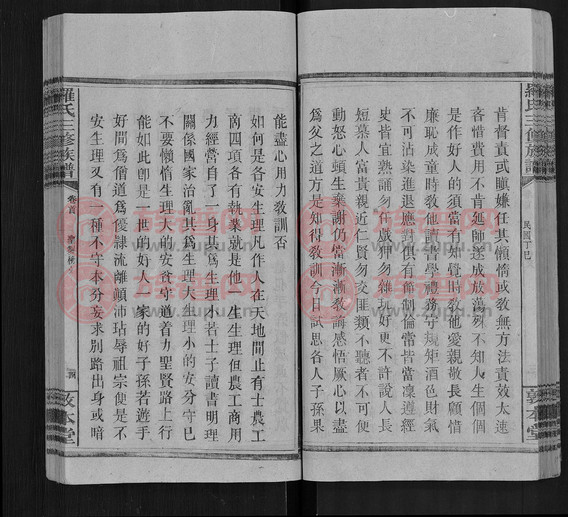 羅氏三修族譜
民國丁巳
敦本堂
肯督責或嗔嫌任其懶惰或教無方法責效太速
惜費用不肯延師遂成放蕩殊不知人生個個
是作好人的須當有知聲時教他愛親敬長顧惜
廉恥成童時教他讀書學禮務守規矩酒色財氣
不可沾染進退應對俱有節制倫常皆當凜遵經
史皆宜熟誦勿任戲狎勿雜玩好更不許說人長
短慕人富貴親近仁賢勿交匪類不聽者不可便
動怒心頓生棄謝仍當漸漸教諭感悟厥心以盡
爲父之道方是知得教訓今日試思各人子孫果
能盡心用力教訓否
如何是各安生理凡作人在天地間止有士農工
商四項各有執業就是他一生生理但農工商用
力經營自了一身其爲生理小若士子讀書明理
關係國家治亂其爲生理大生理小的安分守已
不要懶惰生理大的安貧守道着力聖賢路上行
能如此卽是一世的好人一家的好子孫若遊手
好閒爲僧道爲優隸流離顛沛玷辱祖宗便是不
安生理又有一種不守本分妄求別路出身或暗
羅氏三修族譜
卷首
四
敦本堂